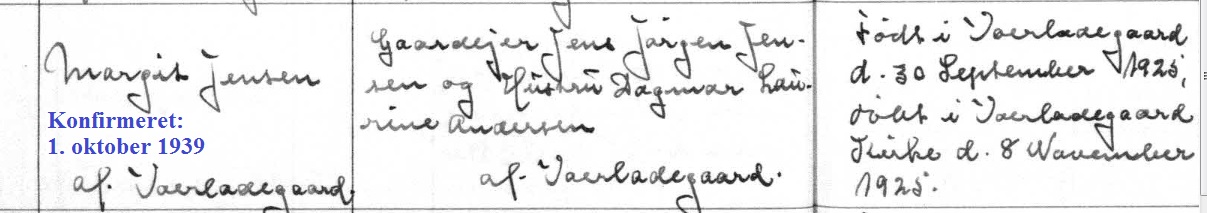 Margit Jensen
Konfirmeret:
1. oktober 1939
af. Vaerladegaard.
Gaardejer Jens Jörgen Jen-
sen og Hustru Dagmar Lau-
rine Andersen
af. Vaerladegaard.
Födt i Vaerladegaard
d. 30 September 1925,
döbt i Vaerladegaard
Kirke d. 8 November
1925.